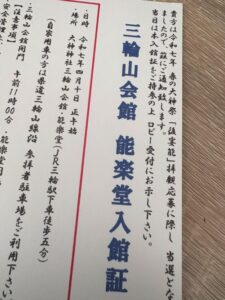 貴方は令和七年 春の大神祭「後宴能」拝観応募に際し 当選とな
ましたので、茲にご通知致します。
当日は本入館証をご持参の上 ロビー受付にお示し下さい。
三輪山会館 能楽堂入館証
・日時 令和七年四月十日 正午始
・場所 大神神社三輪山会館 能楽堂(JR三輪駅下車徒歩五分)
(自家用車の方は県道三輪山線沿 参拝者駐車場をご利用下さい
【注意事項】
・三輪山会館開門 午前11時00分